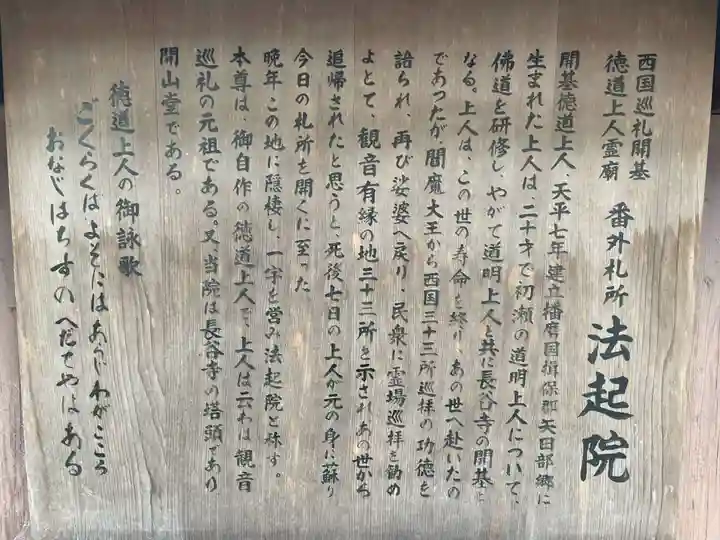 西国巡礼開基
徳道上人霊廟
番外札所 法起院
開基徳道上人、天平七年建立播磨国揖保郡矢田部郷に
生まれた上人は、二十才で初瀬の道明上人について、
佛道を研修し、やがて道明上人と共に長谷寺の開基と
なる。上人は、この世の寿命を終り、あの世へ赴いたの
であったが、閻魔大王から西国三十三所巡拝の功徳を
語られ、再び娑婆へ戻り、民衆に霊場巡拝を勧め
よとて、観音有縁の地三十三所を示されあの世から
追帰されたと思うと、死後七日の上人が元の身に蘇り
今日の札所を開くに至った
晩年この地に隠棲し、一宇を営み法起院と称す。
本尊は、御自作の徳道上人で、上人は云わば観音
巡礼の元祖である。又、当院は長谷寺の塔頭であり
開山堂である。
徳道上人の御詠歌
ごくらくは よそにはあらじ わがこころ
おなじはちすの へだてやはある